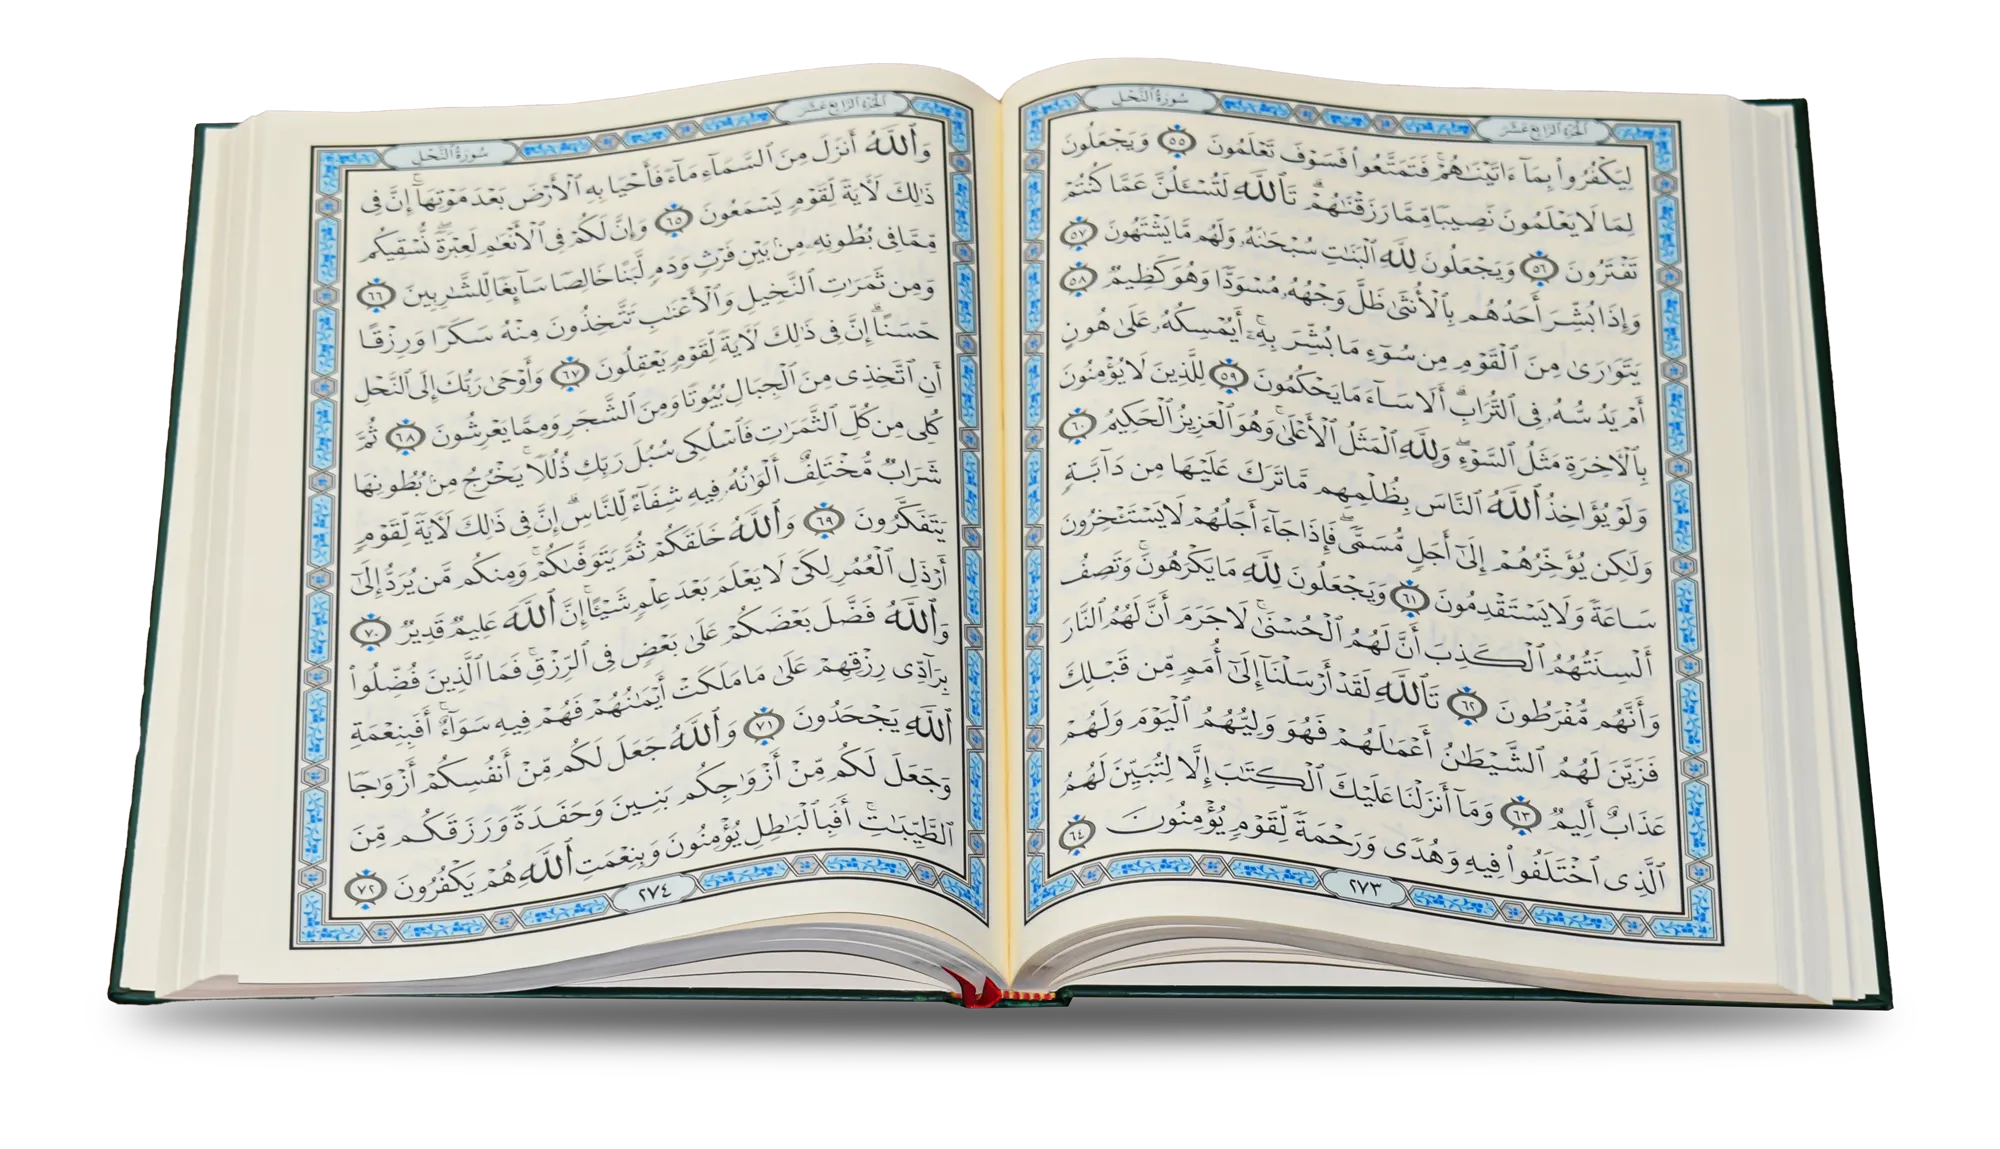 الجُزْءُ الرَّابِعَ عَشَرَ
سُورَةُ النَّحْلِ
لِيَكۡفُرُواْ بِمَآ ءَاتَيۡنَٰهُمۡۚ فَتَمَتَّعُواْ فَسَوۡفَ تَعۡلَمُونَ ٥٥ وَيَجۡعَلُونَ
لِمَا لَا يَعۡلَمُونَ نَصِيبٗا مِّمَّا رَزَقۡنَٰهُمۡۗ تَٱللَّهِ لَتُسۡـَٔلُنَّ عَمَّا كُنتُمۡ
تَفۡتَرُونَ ٥٦ وَيَجۡعَلُونَ لِلَّهِ ٱلۡبَنَٰتِ سُبۡحَٰنَهُۥ وَلَهُم مَّا يَشۡتَهُونَ ٥٧
وَإِذَا بُشِّرَ أَحَدُهُم بِٱلۡأُنثَىٰ ظَلَّ وَجۡهُهُۥ مُسۡوَدّٗا وَهُوَ كَظِيمٞ ٥٨
يَتَوَٰرَىٰ مِنَ ٱلۡقَوۡمِ مِن سُوٓءِ مَا بُشِّرَ بِهِۦٓۚ أَيُمۡسِكُهُۥ عَلَىٰ هُونٍ
أَمۡ يَدُسُّهُۥ فِي ٱلتُّرَابِۗ أَلَا سَآءَ مَا يَحۡكُمُونَ ٥٩ لِلَّذِينَ لَا يُؤۡمِنُونَ
بِٱلۡأٓخِرَةِ مَثَلُ ٱلسَّوۡءِۖ وَلِلَّهِ ٱلۡمَثَلُ ٱلۡأَعۡلَىٰۚ وَهُوَ ٱلۡعَزِيزُ ٱلۡحَكِيمُ ٦٠
وَلَوۡ يُؤَاخِذُ ٱللَّهُ ٱلنَّاسَ بِظُلۡمِهِم مَّا تَرَكَ عَلَيۡهَا مِن دَآبَّةٖ
وَلَٰكِن يُؤَخِّرُهُمۡ إِلَىٰٓ أَجَلٖ مُّسَمّٗىۖ فَإِذَا جَآءَ أَجَلُهُمۡ لَا يَسۡتَـٔۡخِرُونَ
سَاعَةٗ وَلَا يَسۡتَقۡدِمُونَ ٦١ وَيَجۡعَلُونَ لِلَّهِ مَا يَكۡرَهُونَۚ وَتَصِفُ
أَلۡسِنَتُهُمُ ٱلۡكَذِبَ أَنَّ لَهُمُ ٱلۡحُسۡنَىٰۚ لَا جَرَمَ أَنَّ لَهُمُ ٱلنَّارَ
وَأَنَّهُم مُّفۡرَطُونَ ٦٢ تَٱللَّهِ لَقَدۡ أَرۡسَلۡنَآ إِلَىٰٓ أُمَمٖ مِّن قَبۡلِكَ
فَزَيَّنَ لَهُمُ ٱلشَّيۡطَٰنُ أَعۡمَٰلَهُمۡ فَهُوَ وَلِيُّهُمُ ٱلۡيَوۡمَ وَلَهُمۡ
عَذَابٌ أَلِيمٞ ٦٣ وَمَآ أَنزَلۡنَا عَلَيۡكَ ٱلۡكِتَٰبَ إِلَّا لِتُبَيِّنَ لَهُمُ
ٱلَّذِي ٱخۡتَلَفُواْ فِيهِ وَهُدٗى وَرَحۡمَةٗ لِّقَوۡمٖ يُؤۡمِنُونَ ٦٤
٢٧٣
الجُزْءُ الرَّابِعَ عَشَرَ
سُورَةُ النَّحْلِ
وَٱللَّهُ أَنزَلَ مِنَ ٱلسَّمَآءِ مَآءٗ فَأَحۡيَا بِهِ ٱلۡأَرۡضَ بَعۡدَ مَوۡتِهَآۚ إِنَّ فِي
ذَٰلِكَ لَأٓيَةٗ لِّقَوۡمٖ يَسۡمَعُونَ ٦٥ وَإِنَّ لَكُمۡ فِي ٱلۡأَنۡعَٰمِ لَعِبۡرَةٗۖ نُّسۡقِيكُم
مِّمَّا فِي بُطُونِهِۦ مِنۢ بَيۡنِ فَرۡثٖ وَدَمٖ لَّبَنًا خَالِصٗا سَآئِغٗا لِّلشَّٰرِبِينَ ٦٦
وَمِن ثَمَرَٰتِ ٱلنَّخِيلِ وَٱلۡأَعۡنَٰبِ تَتَّخِذُونَ مِنۡهُ سَكَرٗا وَرِزۡقًا
حَسَنًاۚ إِنَّ فِي ذَٰلِكَ لَأٓيَةٗ لِّقَوۡمٖ يَعۡقِلُونَ ٦٧ وَأَوۡحَىٰ رَبُّكَ إِلَى ٱلنَّحۡلِ
أَنِ ٱتَّخِذِي مِنَ ٱلۡجِبَالِ بُيُوتٗا وَمِنَ ٱلشَّجَرِ وَمِمَّا يَعۡرِشُونَ ٦٨ ثُمَّ
كُلِي مِن كُلِّ ٱلثَّمَرَٰتِ فَٱسۡلُكِي سُبُلَ رَبِّكِ ذُلُلٗاۚ يَخۡرُجُ مِنۢ بُطُونِهَا
شَرَابٞ مُّخۡتَلِفٌ أَلۡوَٰنُهُۥ فِيهِ شِفَآءٞ لِّلنَّاسِۚ إِنَّ فِي ذَٰلِكَ لَأٓيَةٗ لِّقَوۡمٖ
يَتَفَكَّرُونَ ٦٩ وَٱللَّهُ خَلَقَكُمۡ ثُمَّ يَتَوَفَّىٰكُمۡۚ وَمِنكُم مَّن يُرَدُّ إِلَىٰٓ
أَرۡذَلِ ٱلۡعُمُرِ لِكَيۡ لَا يَعۡلَمَ بَعۡدَ عِلۡمٖ شَيۡـًٔاۚ إِنَّ ٱللَّهَ عَلِيمٞ قَدِيرٞ ٧٠
وَٱللَّهُ فَضَّلَ بَعۡضَكُمۡ عَلَىٰ بَعۡضٖ فِي ٱلرِّزۡقِۚ فَمَا ٱلَّذِينَ فُضِّلُواْ
بِرَآدِّي رِزۡقِهِمۡ عَلَىٰ مَا مَلَكَتۡ أَيۡمَٰنُهُمۡ فَهُمۡ فِيهِ سَوَآءٌۚ أَفَبِنِعۡمَةِ
ٱللَّهِ يَجۡحَدُونَ ٧١ وَٱللَّهُ جَعَلَ لَكُم مِّنۡ أَنفُسِكُمۡ أَزۡوَٰجٗا
وَجَعَلَ لَكُم مِّنۡ أَزۡوَٰجِكُم بَنِينَ وَحَفَدَةٗ وَرَزَقَكُم مِّنَ
ٱلطَّيِّبَٰتِۚ أَفَبِٱلۡبَٰطِلِ يُؤۡمِنُونَ وَبِنِعۡمَتِ ٱللَّهِ هُمۡ يَكۡفُرُونَ ٧٢
٢٧٤